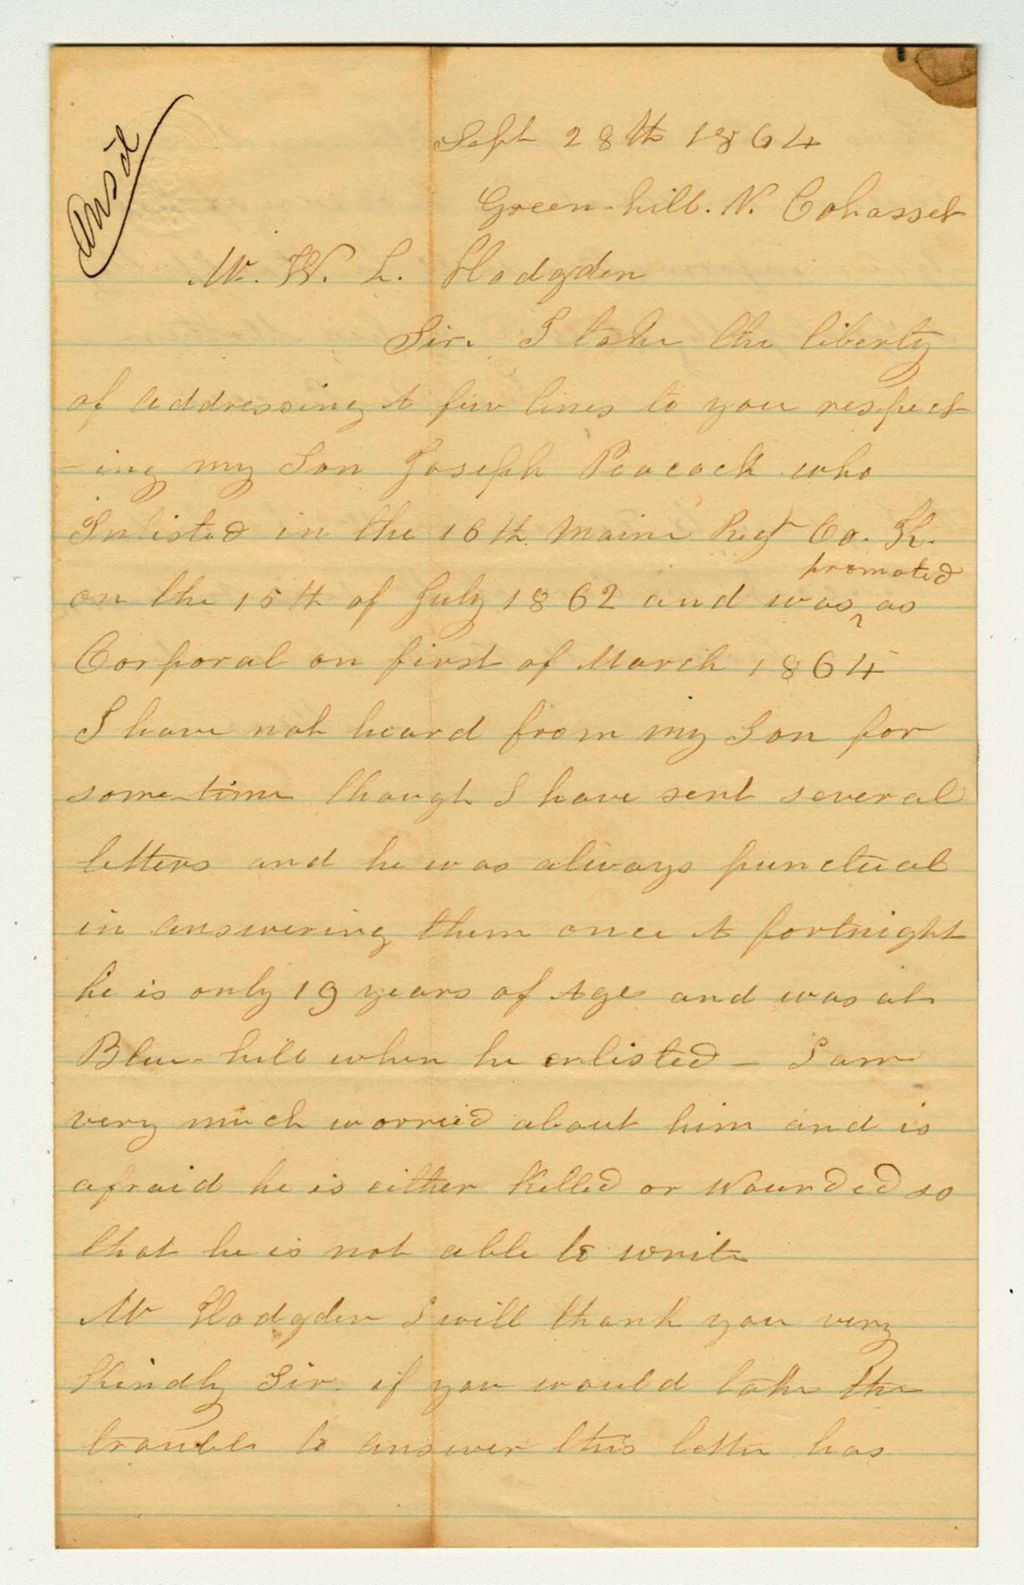 Ans'd
Sept 28th 1864
Green-hill. N. Cohasset
Mr. W. L. Hodgden
Sir. I take the liberty
of addressing A few lines to you respect
-ing my Son Joseph Peacock who
Inlisted in the 16th Maine Regt Co. K.
promoted
on the 15th of July 1862 and was ^ as
Corporal on first of March 1864
I have not heard from my Son for
some time though I have sent several
letters and he was always punctual
in answering them once A fortnight
he is only 19 years of Age and was at
Blue-hill when he enlisted - I am
very much worried about him and is
afraid he is either Killed or Wounded so
that he is not able to write
Mr Hodgden I will thank you very
Kindly Sir. if you would take the
trouble to answer this letter has